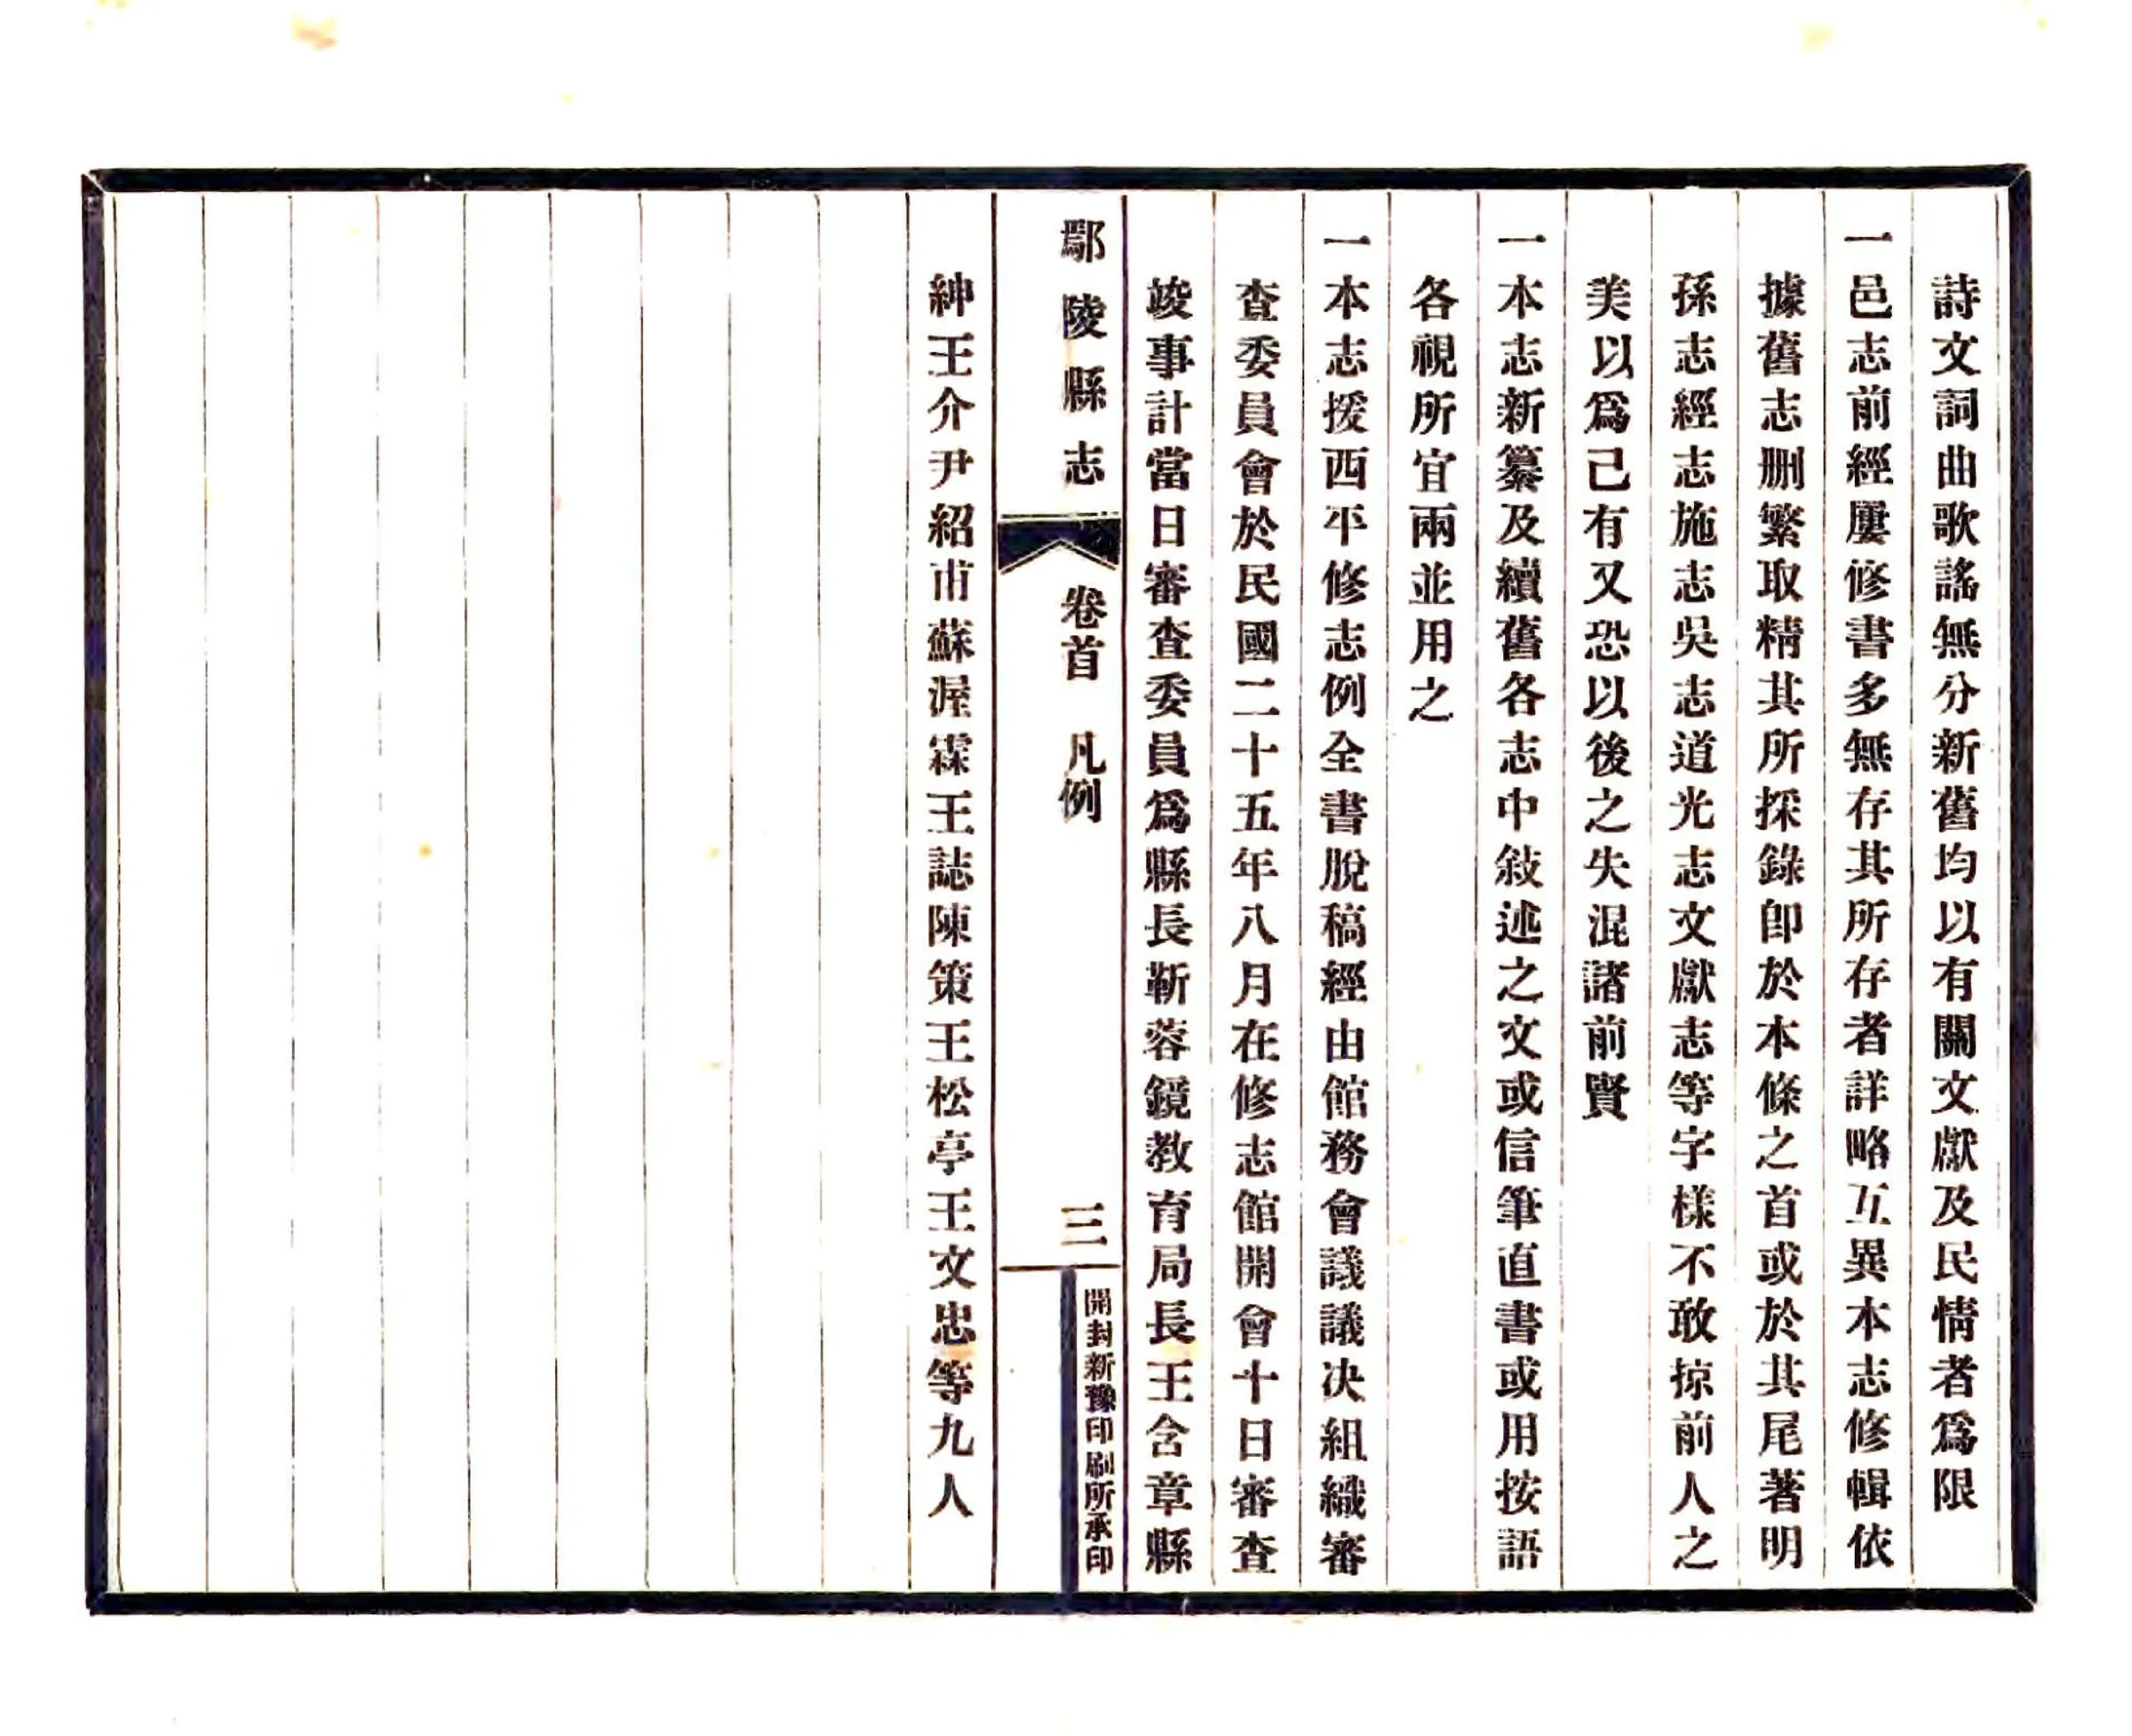 詩文詞曲歌謠無分新舊均以有關文獻及民情者爲限
一邑志前經屢修書多無存其所存者詳略互異本志修輯依
據舊志刪繁取精其所採錄卽於本條之首或於其尾著明
孫志經志施志吳志道光志文獻志等字樣不敢掠前人之
美以爲己有又恐以後之失混諸前賢
一本志新纂及續舊各志中敍述之文或信筆直書或用按語
各視所宜兩並用之
一本志援西平修志例全書脫稿經由館務會議議决組織審
查委員會於民國二十五年八月在修志館開會十日審查
竣事計當日審查委員爲縣長靳蓉鏡教育局長王含章縣
鄢陵縣志
卷首 凡例
三
開封新豫印刷所承印
紳王介尹紹甫蘇渥霖王誌陳策王松亭王文忠等九人